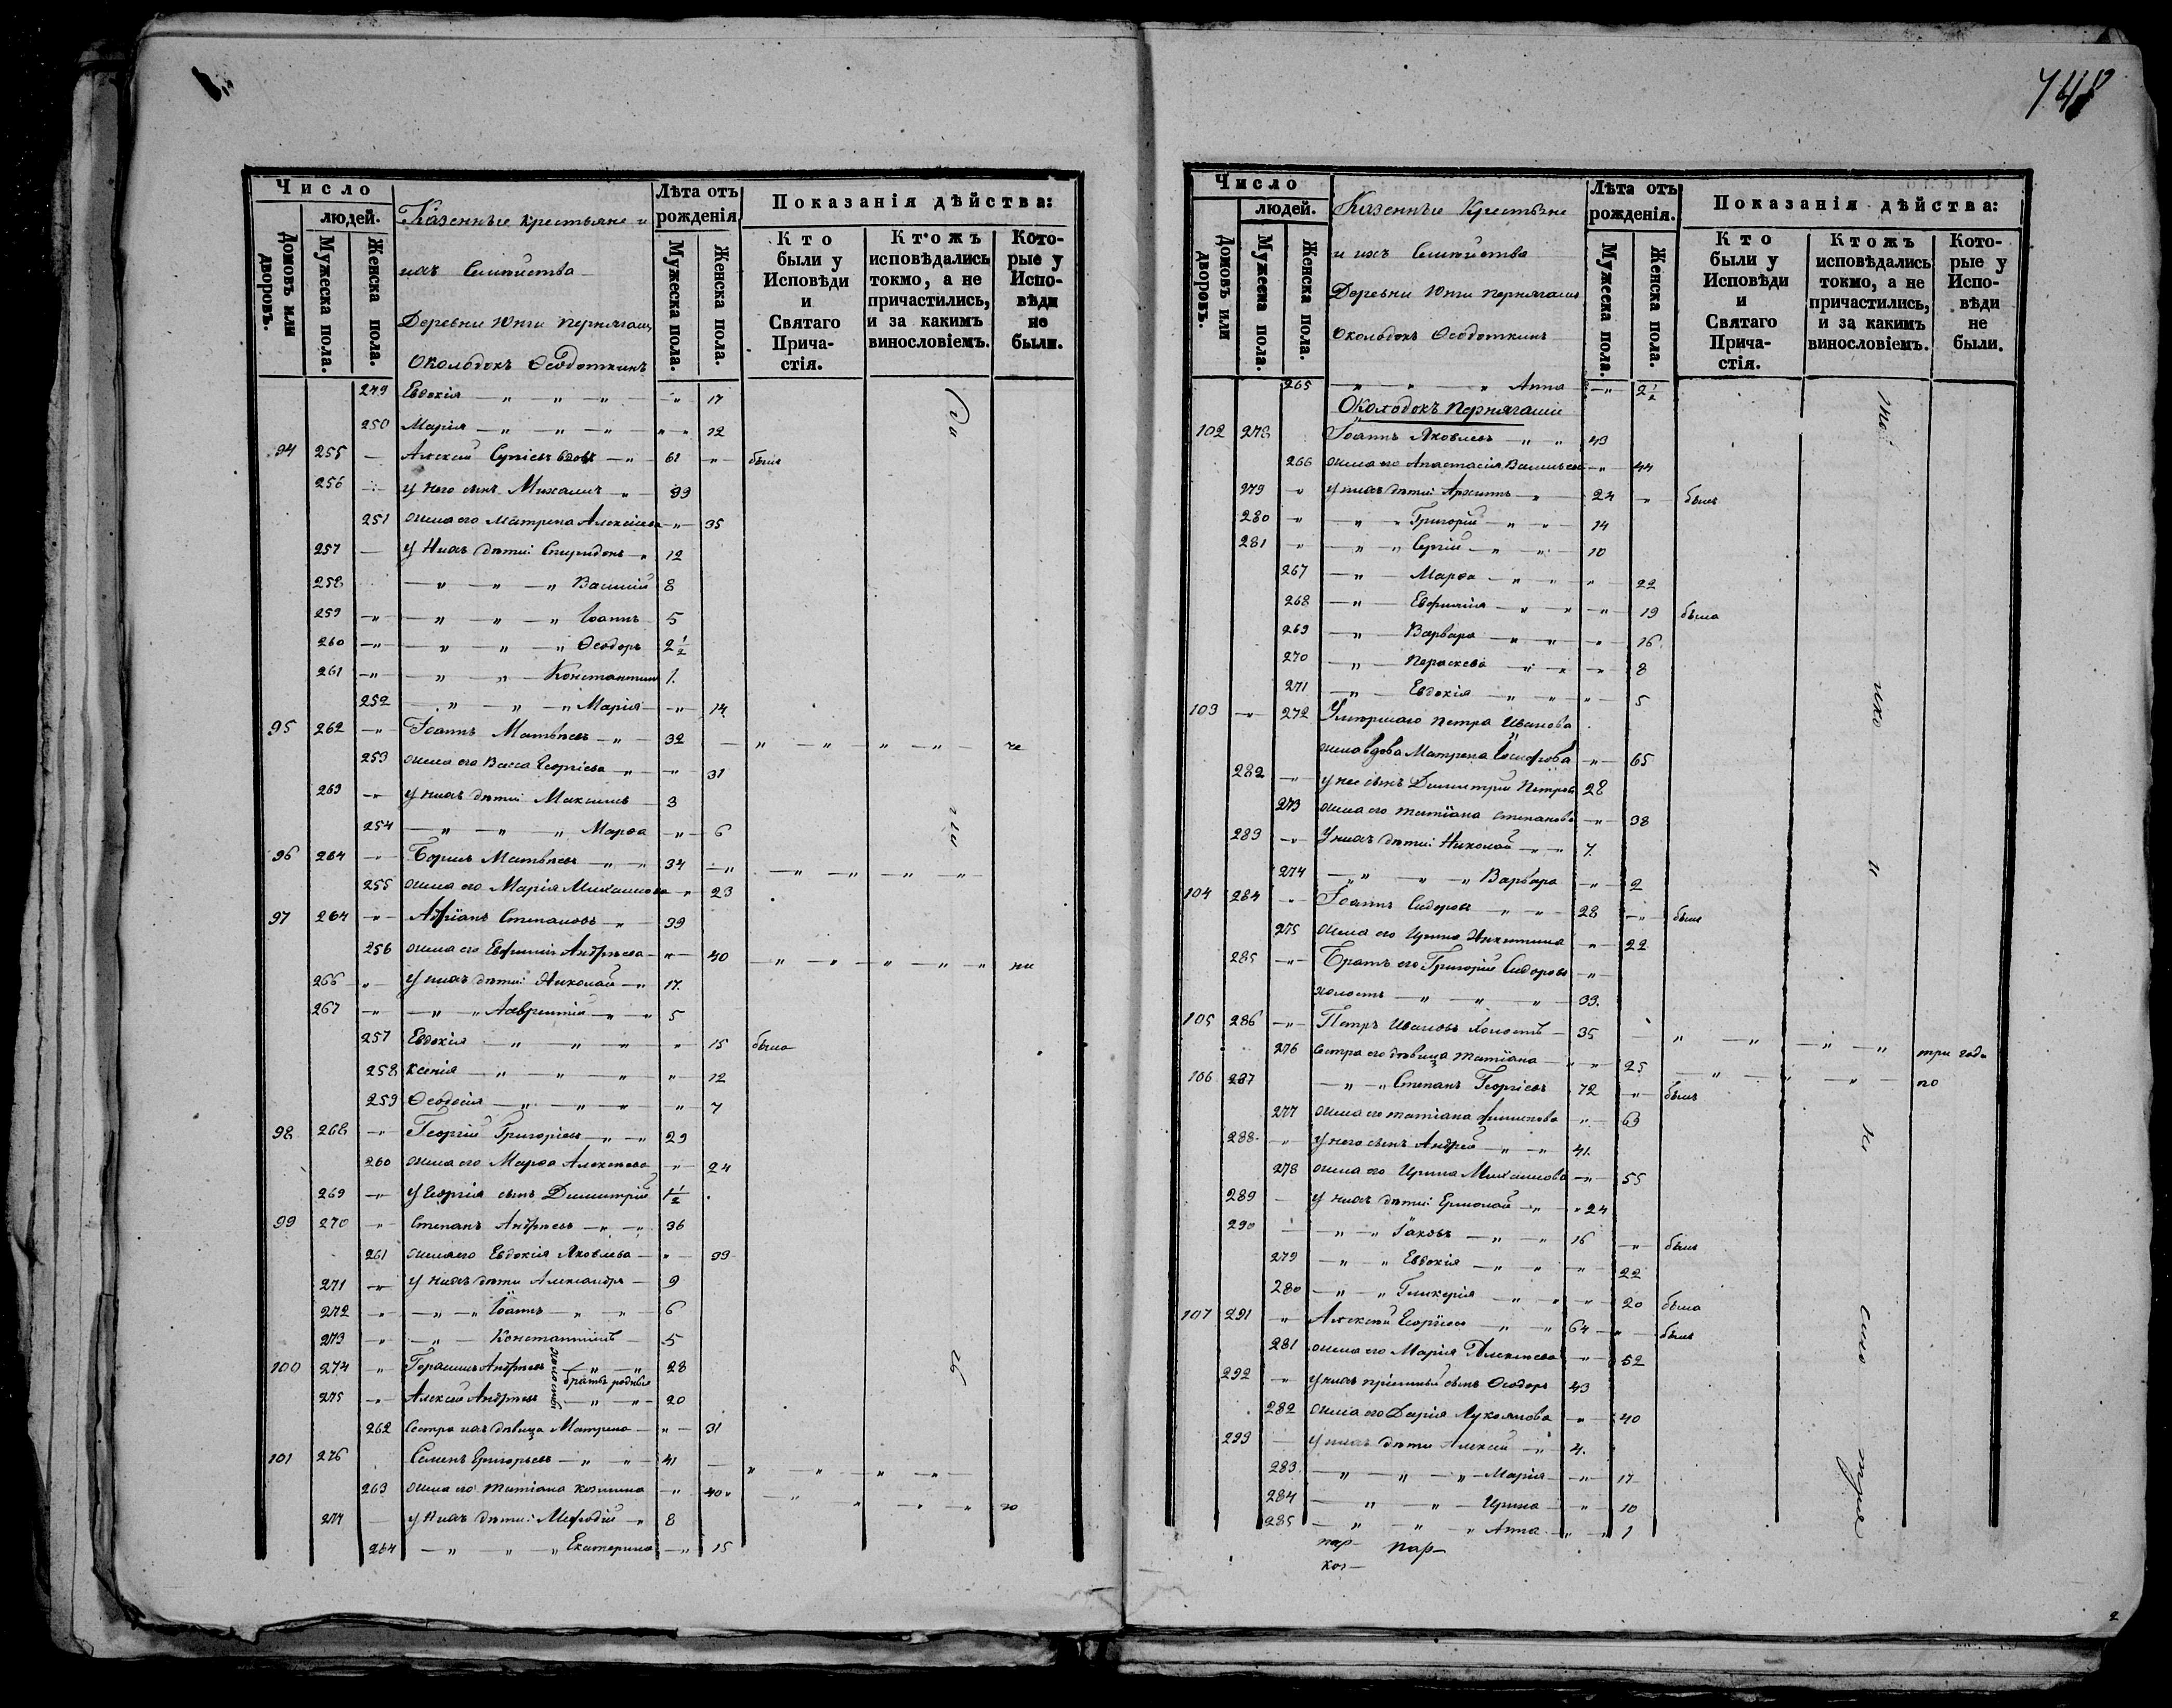 Число
людей.
Домовъ или дворовъ.
Мужеска пола.
Женска пола.
Казенные крестьяне и
ихъ Семейства
Деревни Юнги Пернягаш,
Околодокъ Ѳедоткинъ
Лѣта отъ рожденія
Мужеска пола.
Женска пола.
Показанія дѣйства:
Кто были у Исповѣди и Святаго Прича-стія.
Ктожъ исповѣдались токмо, а не причастились, и за какимъ винословіемъ.
Кото-рые у Испо-вѣди не были.
249 Евдокія — „ — „ — „ — „ 17
250 Марія — „ — „ — „ „ — „ 12
94 255 — Алексій вдовъ — „ 61 „ былъ
256 — у него сынъ Михаилъ „ 39
251 жена его Матрена Алексіева — „ 35
257 — у нихъ дѣти: Спиридонъ — „ 12
258 — „ — „ — „ Василій 8
259 — „ — „ — „ — „ Іоаннъ 5
260 — „ — „ — „ — „ Ѳеодоръ 2 1/2
261 — „ — „ — „ — Константинъ 1.
252 — „ — „ — „ Марія — „ 14
95 262 — „ Іоаннъ Матвѣевъ — „ 32 — „ — „ „ — „ — не
253 жена его Васса Георгіева „ — „ 31
263 — „ у нихъ дѣти: Максимъ — 3
254 — „ — „ — „ Марѳа — „ 6
96 264 — „ Борисъ Матвѣевъ — „ — „ 34 — „ — „ — „ — „ — „
255 жена его Марія Михаилова — „ 23
97 264 „ Адріанъ Степановъ — „ 39
256 жена его Евфимія Андреева — „ 40 — „ — „ „ — „ — „ ни
266 „ у нихъ дѣти: Николай — „ 17.
267 — „ — „ — „ Лаврентій — „ — „ 5
257 Евдокія — „ — „ — „ „ 15 была
258 Ксенія — „ — „ — „ „ 12
259 Ѳеодосія — „ — „ — „ „ 7
98 268 — „ Георгій Григорьевъ — „ — „ 29
260 жена его Марѳа Алексѣева „ 24
269 — „ у Георгія сынъ Димитрій 1 1/2
99 270 „ Степанъ Андреевъ — „ — „ 36
261 жена его Евдокія Яковлева — „ 39
271 — „ у нихъ дѣти Александръ — 9
272 — „ — „ — „ Іоаннъ — „ — „ 6
273 — „ — „ — Константинъ — 5
100 274 „ Герасимъ Андреевъ — „ — „ 28
холосты
братья родные
275 — „ Алексій Андреевъ — „ — „ 20
262 Сестра ихъ дѣвица Матрена — „ — 31
101 276 Семенъ Григорьевъ — „ — „ 41 — „ — „ — „ — „
263 жена его Татіана Козмина — „ 40 — „ „ — „ — „ го
274 — у нихъ дѣти: Меѳодій — „ 8
264 — „ — „ — „ Екатерина — „ 15
748
Число
людей.
Домовъ или дворовъ.
Мужеска пола.
Женска пола.
Казенные Крестьяне
и ихъ Семейства
Деревни Юнги Пернягашъ
Околодокъ Ѳедоткинъ
Лѣта отъ рожденія.
Мужеска пола.
Женска пола.
Показанія дѣйства:
Кто были у Исповѣди и Святаго Прича-стія.
Ктожъ исповѣдались токмо, а не причастились, и за какимъ винословіемъ.
Кото-рые у Испо-вѣди не были.
265 „ — „ — „ Анна — „ 2 1/2
Околодокъ Пернягаши
102 278 Іоаннъ Яковлевъ — „ — „ 43
266 жена его Анастасія — „ 44
279 „ у нихъ дѣти: Архипъ — „ 24 „ былъ
280 „ — „ „ Григорій — „ — „ 14
281 „ — „ — „ Сергій — „ — „ 10
267 — „ — Марѳа — „ — „ „ 22
268 — „ — Евфимія — „ — „ — „ 19 была
269 — „ — Варвара — „ — „ „ 16
270 — „ — Параскева — „ „ „ 8
271 — „ — Евдокія — „ — „ „ 5
103 — „ 272 Умершаго Петра Иванова
жена вдова Матрена — „ 65
282 — „ у нее сынъ Димитрій Петровъ 28
273 жена его Татіана Степанова — „ 38
283 — „ У нихъ дѣти: Николай — „ — „ 7.
274 — „ — „ — „ Варвара — „ 2
104 284 „ Іоаннъ Сидоровъ — „ — „ 28 — „ былъ
275 жена его Ирина Никитина „ 22
285 — „ Братъ его Григорій Сидоровъ — „
холостъ — „ — „ — „ 33.
105 286 — „ Петръ Ивановъ холостъ — 35 — „ — „ — „ — „ три года
276 Сестра его дѣвица Татіана — „ „ 25 — „ — „ „ — по
106 287 — „ — „ Степанъ Георгіевъ 72 „ былъ
277 жена его Татіана Филипова „ 69
288 — „ у него сынъ Андрей — „ — „ 41.
278 жена его Ирина Михаилова — „ 55
289 — у нихъ дѣти: Ермолай — „ „ 24
290 — „ — „ Іаковъ — „ — „ 16 „ былъ
279 — „ — „ Евдокія — „ — „ „ 22
280 — „ — „ Гликерія — „ „ „ 20 была
107 291 „ Алексій Георгіевъ — „ — „ 64 „ былъ
281 жена его Марія Алексѣева „ 52
292 „ у нихъ пріемный сынъ Ѳеодоръ 43
282 жена его Дарія Лукоянова „ 40
293 — у нихъ дѣти Алексій — „ 4.
283 — „ — „ — „ Марія — „ 17
284 — „ — „ — Ирина — „ 10
285 — „ — „ — „ Анна — „ „ 1
пар— пар—
ког—